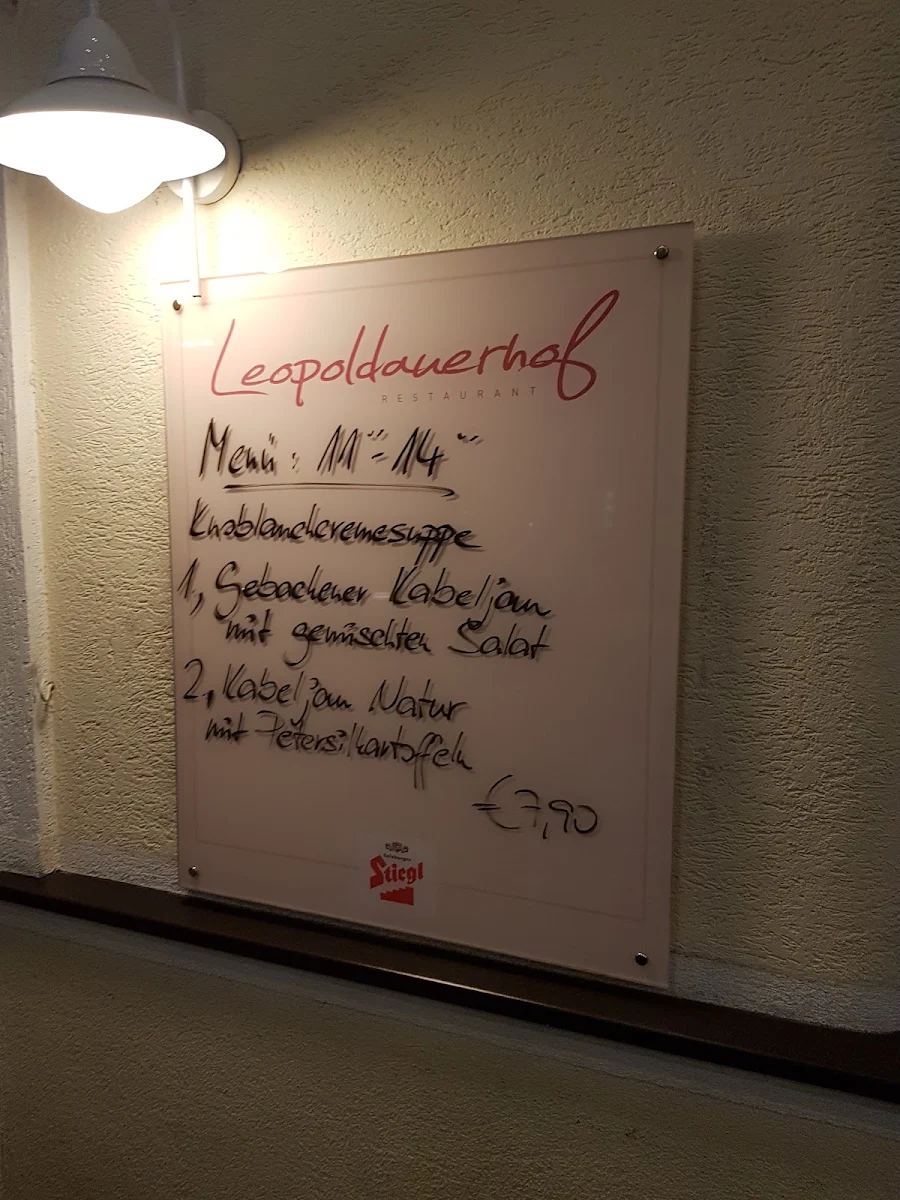 Leopoldauerhof
RESTAURANT
Menü: 11°°-14°°
Knoblauchcremesuppe
1, Gebackener Kabeljau
mit gemischten Salat
2, Kabeljau Natur
mit Petersilkartoffeln
€7,90
Salzburger
Stiegl